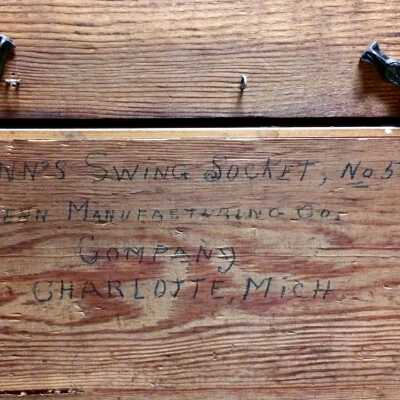 NN'S SWING SOCKET, No. 5
ENN MANUFACTURING CO.
COMPANY
CHARLOTTE, MICH